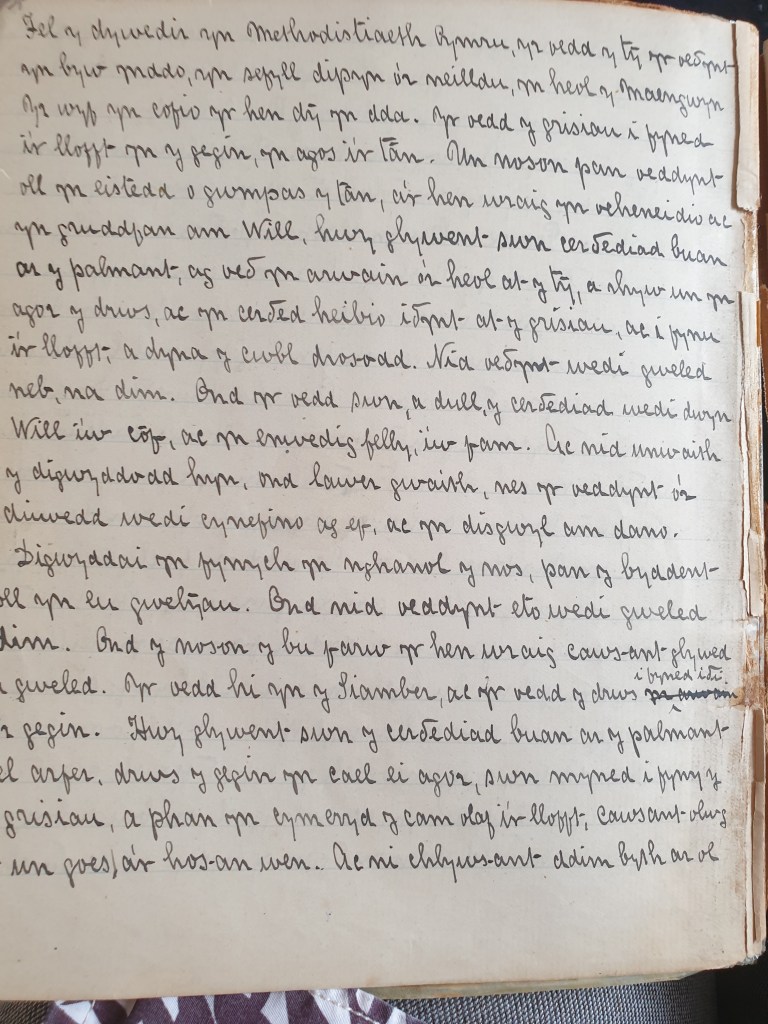 Fel y dywedir yn Methodistiaeth Cymru, yr oedd y tŷ yr oeðynt
yn byw ynddo, yn sefyll dipyn o'r neilldu, yn heol y Maengwyn
Yr wyf yn cofio yr hen dŷ yn dda. Yr oedd y grisiau i fyned
i'r llofft yn y gegin, yn agos i'r tân. Un noson pan oeddynt
oll yn eistedd o gwmpas y tân, a'r hen wraig yn ocheneidio ac
yn gruddfan am Will, hwy glywent swn cerðediad buan
ar y palmant, ag oeð yn arwain o'r heol at y tŷ, a rhyw un yn
agor y drws, ac yn cerðed heibio iðynt at y grisiau, ac i fynu
i'r llofft, a dyna y cwbl drosodd. Nid oeðynt wedi gweled
neb, na dim. Ond yr oedd swn, a dull, y cerðediad wedi dwyn
Will i'w côf, ac yn enwedig felly, i'w fam. Ac nid unwaith
y digwyddodd hyn, ond lawer gwaith, nes yr oeddynt o'r
diwedd wedi cynefino ag ef, ac yn disgwyl am dano.
Digwyddai yn fynych yn nghanol y nos, pan y byddent
oll yn eu gwelŷau. Ond nid oeddynt eto wedi gweled
dim. Ond y noson y bu farw yr hen wraig cawsant glywed
a gweled. Yr oedd hi yn y Siamber, ac yr oedd y drws i fyned iði
o'r gegin. Hwy glywent swn y cerðediad buan ar y palmant
fel arfer, drws y gegin yn cael ei agor, swn myned i fyny y
grisiau, a phan yn cymeryd y cam olaf i'r llofft, cawsant olwg
ar un goes, a'r hosan wen. Ac ni chlywsant ddim byth ar ol